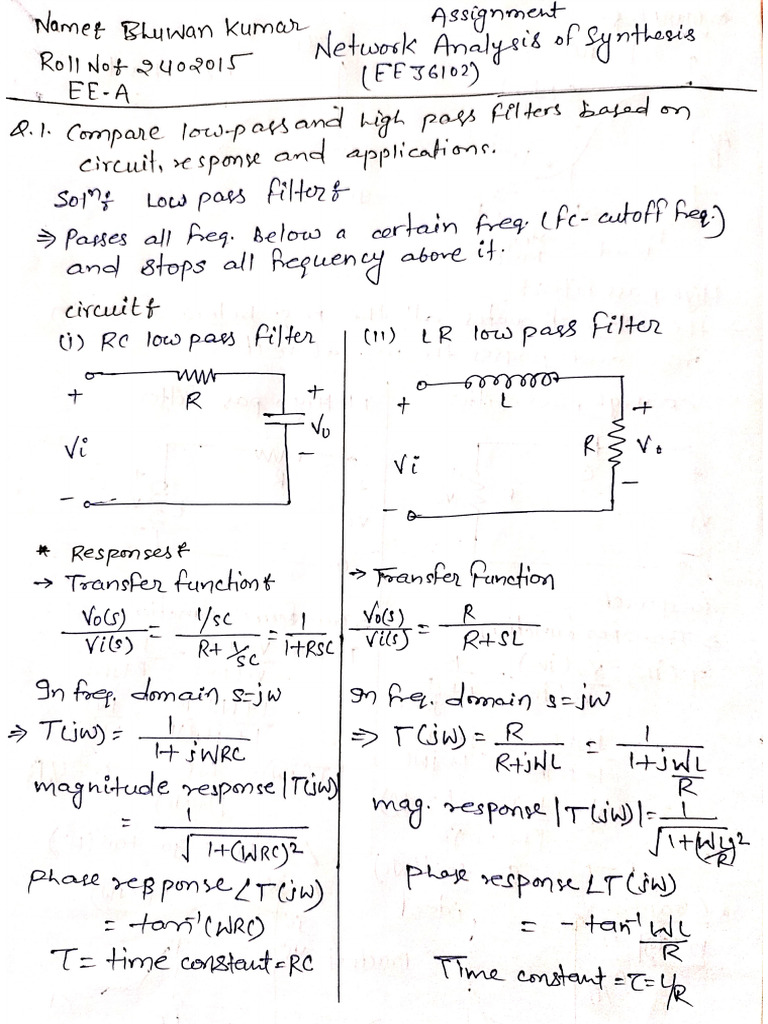 Name: Bhuwan Kumar
Assignment
Roll No: 2402015
Network Analysis of Synthesis
EE-A
(EE36102)
Q.1. Compare low-pass and high pass filters based on
circuit, response and applications.
Solⁿ: Low pass filter:
⇒ Passes all freq. Below a certain freq. (fc - cutoff freq.)
and stops all frequency above it.
circuit:
(i) RC low pass filter
+ R +
Vi Vo
- -
* Responses:
→ Transfer function:
Vo(s)/Vi(s) = (1/sC)/(R + 1/sC) = 1/(1+RSC)
In freq. domain, s=jw
⇒ T(jw) = 1/(1+jWRC)
magnitude response |T(jw)|
= 1/√(1+(WRC)²)
Phase response ∠T(jw)
= tan⁻¹(WRC)
T = time constant = RC
(ii) LR low pass filter
L
+ +
Vi R Vo
- -
→ Transfer function
Vo(s)/Vi(s) = R/(R+SL)
In freq. domain s=jw
⇒ T(jw) = R/(R+jWL) = 1/(1+jWL/R)
mag. response |T(jw)| = 1/√(1+(WL/R)²)
Phase response ∠T(jw)
= -tan⁻¹ WL/R
Time constant = τ = L/R